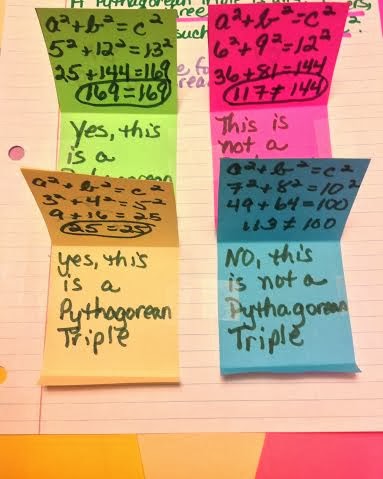 A Pythagorean Triple is
such
a²+b²=c²
5²+12²=13²
25+144=169
169=169
Yes, this
is a
a²+b²=c²
6²+9²=12²
36+81=144
117≠144
This is
not a
a²+b²=c²
3²+4²=5²
9+16=25
25=25
yes, this
is a
Pythagorean
Triple
a²+b²=c²
7²+8²=10²
49+64=100
113≠100
NO, this
is not a
Pythagorean
Triple